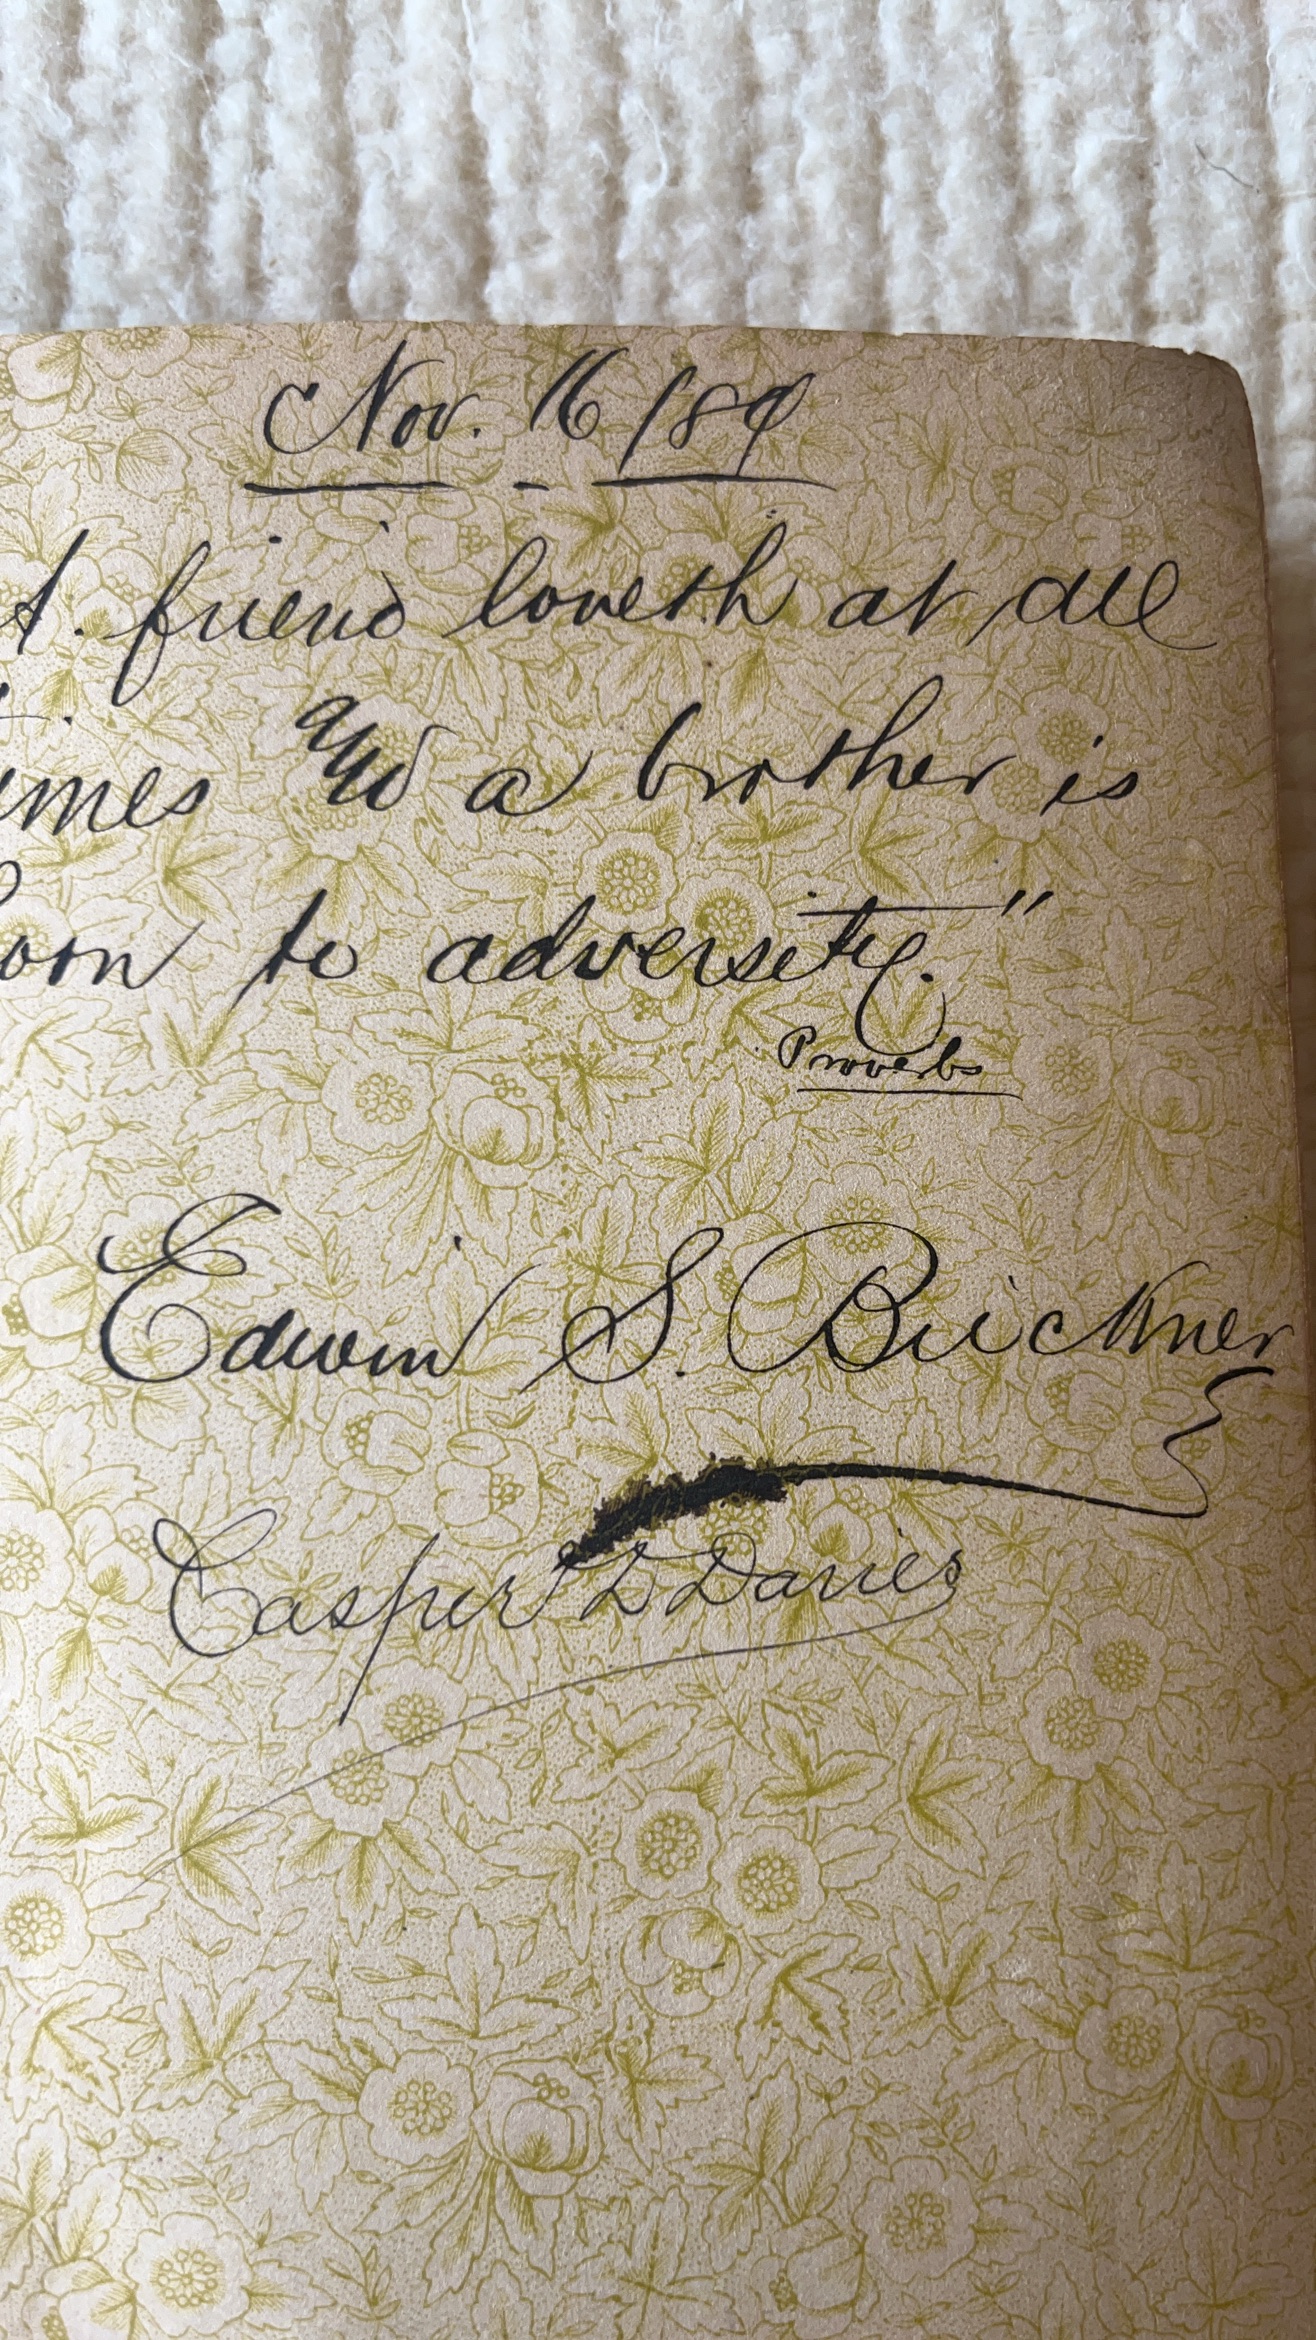 Nov. 16/89
A. friend loveth at all
times and a brother is
born to adversity."
Proverbs
Edwin S. Buckner
Casper D Davies